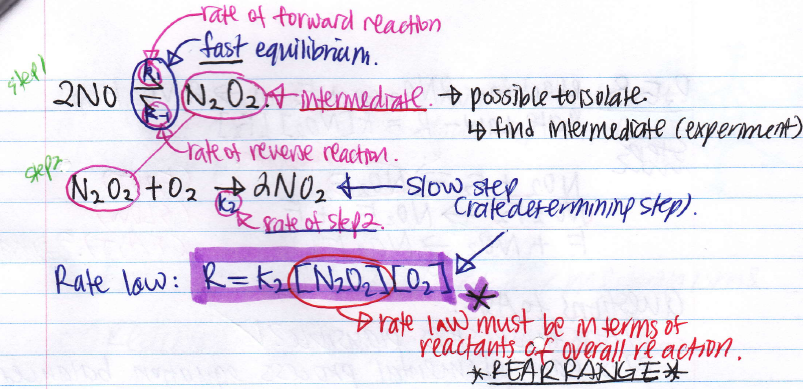 rate of forward reaction
fast equilibrium.
step 1
2NO ⇌ N2O2 ← intermediate. → possible to isolate.
k1
k-1
↳ find intermediate (experiment)
rate of reverse reaction.
step 2
N2O2 + O2 → 2NO2 ← slow step
k2
(rate determining step).
rate of step 2.
Rate law: R = k2 [N2O2][O2] *
→ rate law must be in terms of
reactants of overall reaction.
*REARRANGE*